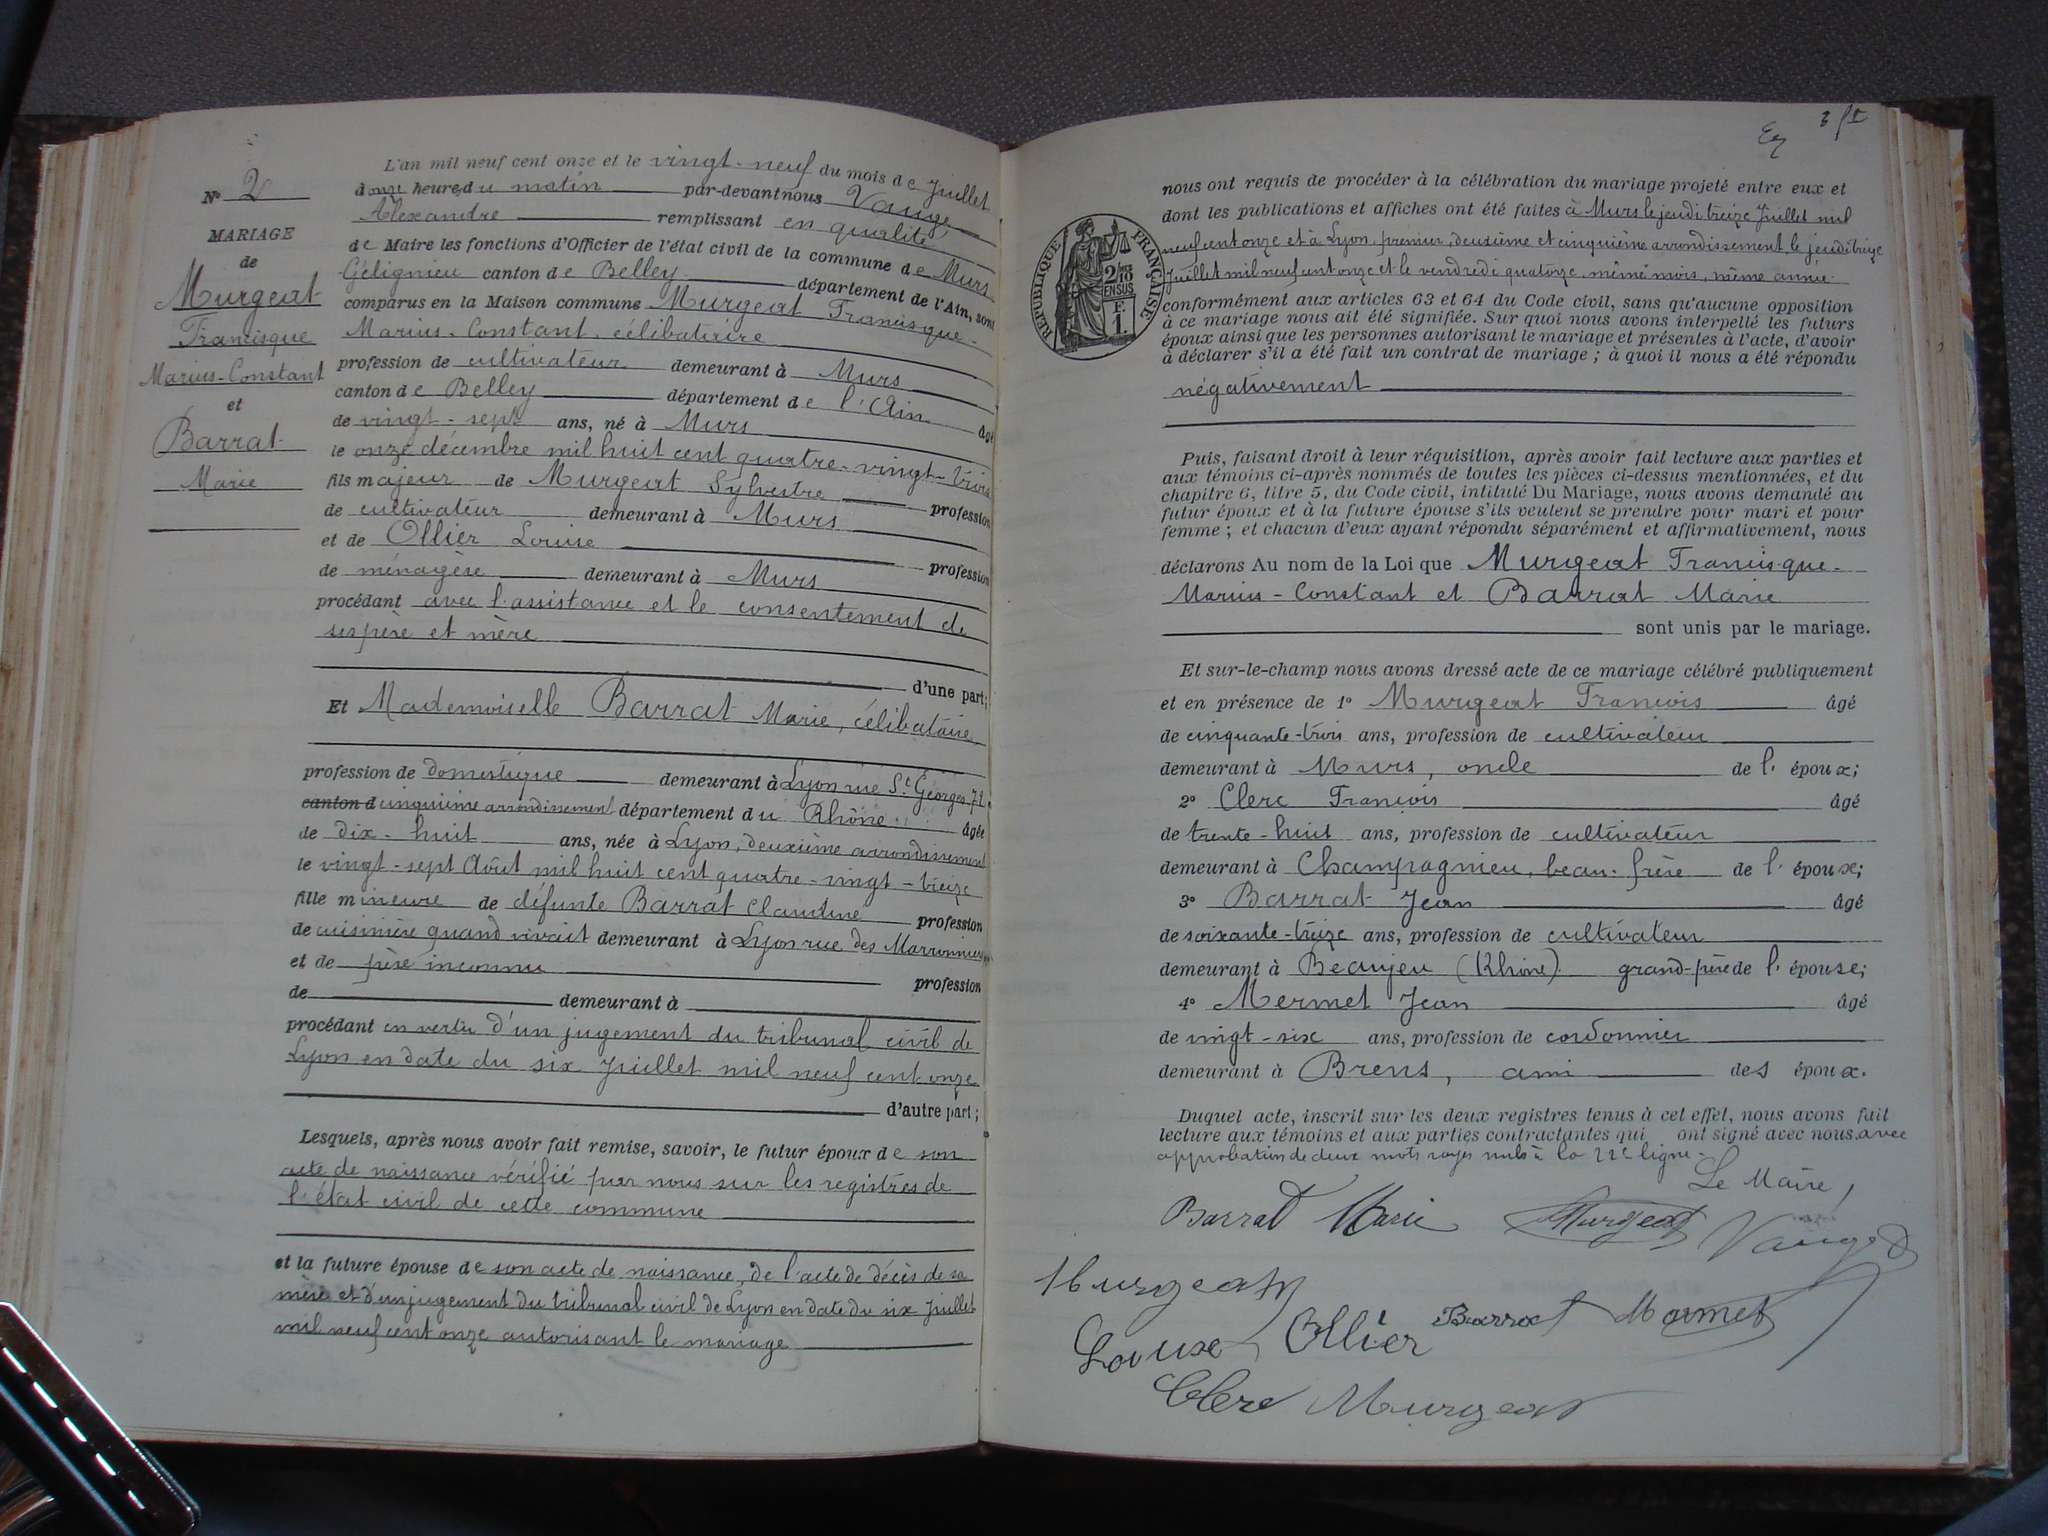 L'an mil neuf cent onze et le vingt-neuf du mois de Juillet
N° 2
à onze heures du matin par-devant nous Vauge
Alexandre remplissant en qualité
MARIAGE
de Maire les fonctions d'Officier de l'état civil de la commune de Murs
de
Gélignieu canton de Belley département de l'Ain, sont
Murgeat
comparus en la Maison commune Murgeat Francisque-
Francisque
Marius-Constant, célibataire
Marius-Constant
profession de cultivateur demeurant à Murs
et
canton de Belley département de l'Ain âgé
Barrat
de vingt-sept ans, né à Murs
Marie
le onze décembre mil huit cent quatre-vingt-trois
fils majeur de Murgeat Sylvestre profession
de cultivateur demeurant à Murs
et de Ollier Louise profession
de ménagère demeurant à Murs
procédant avec l'assistance et le consentement de
ses père et mère
d'une part;
Et Mademoiselle Barrat Marie, célibataire
profession de domestique demeurant à Lyon rue St Georges 71
canton d cinquième arrondissement département du Rhône âgée
de dix-huit ans, née à Lyon, deuxième arrondissement
le vingt-sept Août mil huit cent quatre-vingt-treize
fille mineure de défunte Barrat Claudine profession
de cuisinière quand vivait demeurant à Lyon rue des Marronniers
et de père inconnu profession
de demeurant à
procédant en vertu d'un jugement du tribunal civil de
Lyon en date du six Juillet mil neuf cent onze
d'autre part;
Lesquels, après nous avoir fait remise, savoir, le futur époux de son
acte de naissance vérifié par nous sur les registres de
l'état civil de cette commune
et la future épouse de son acte de naissance, de l'acte de décès de sa
mère et d'un jugement du tribunal civil de Lyon en date du six Juillet
mil neuf cent onze autorisant le mariage
nous ont requis de procéder à la célébration du mariage projeté entre eux et
dont les publications et affiches ont été faites à Murs le jeudi treize Juillet mil
neuf cent onze et à Lyon premier, deuxième et cinquième arrondissement le jeudi treize
Juillet mil neuf cent onze et le vendredi quatorze même mois, même année.
RÉPUBLIQUE FRANÇAISE
2/10 EN SUS
F. 1.
conformément aux articles 63 et 64 du Code civil, sans qu'aucune opposition
à ce mariage nous ait été signifiée. Sur quoi nous avons interpellé les futurs
époux ainsi que les personnes autorisant le mariage et présentes à l'acte, d'avoir
à déclarer s'il a été fait un contrat de mariage; à quoi il nous a été répondu
négativement
Puis, faisant droit à leur réquisition, après avoir fait lecture aux parties et
aux témoins ci-après nommés de toutes les pièces ci-dessus mentionnées, et du
chapitre 6, titre 5, du Code civil, intitulé Du Mariage, nous avons demandé au
futur époux et à la future épouse s'ils veulent se prendre pour mari et pour
femme; et chacun d'eux ayant répondu séparément et affirmativement, nous
déclarons Au nom de la Loi que Murgeat Francisque-
Marius-Constant et Barrat Marie
sont unis par le mariage.
Et sur-le-champ nous avons dressé acte de ce mariage célébré publiquement
et en présence de 1° Murgeat François âgé
de cinquante-trois ans, profession de cultivateur
demeurant à Murs, oncle de l'époux;
2° Clerc François âgé
de trente-huit ans, profession de cultivateur
demeurant à Champagnieu, beau-frère de l'époux;
3° Barrat Jean âgé
de soixante-treize ans, profession de cultivateur
demeurant à Beaujeu (Rhône) grand-père de l'épouse;
4° Mermet Jean âgé
de vingt-six ans, profession de cordonnier
demeurant à Brens, ami des époux.
Duquel acte, inscrit sur les deux registres tenus à cet effet, nous avons fait
lecture aux témoins et aux parties contractantes qui ont signé avec nous avec
approbation de deux mots rayés nuls à la 22e ligne.
Le Maire,
Barrat Marie Murgeat Vauge
Murgeat
Louise Ollier Barrat Mermet
Clerc Murgeat